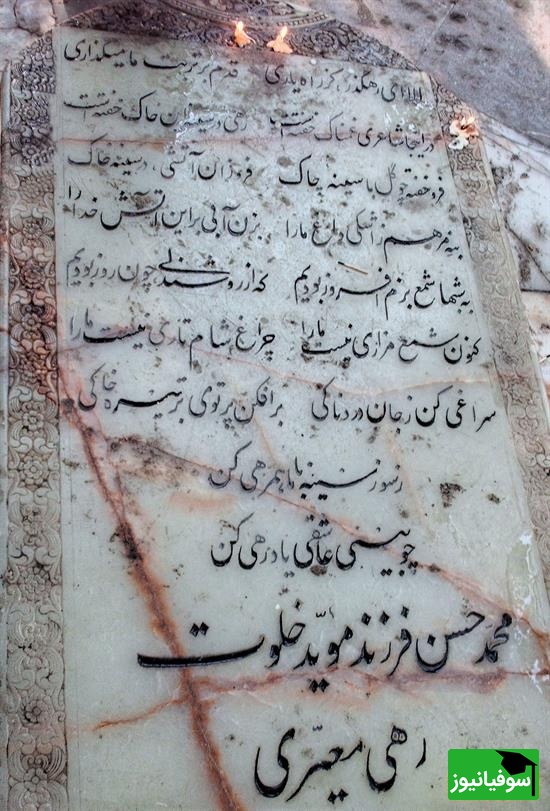 الا ای رهگذر، کز راه یاری قدم بر تربت ما میگذاری
در اینجا شاعری غمناک خفته است رهی در سینه این خاک خفته است
فرو خفته چو گل با سینه چاک فروزان آتشی، در سینه خاک
بنه مرهم ز اشکی داغ ما را بزن آبی بر این آتش خدا را
به شبها شمع بزم افروز بودیم که از روشندلی چون روز بودیم
کنون شمع مزاری نیست ما را چراغ شام تاری نیست ما را
سراغی کن ز جان دردناکی بر افکن پرتوی بر تیره خاکی
ز سوز سینه با ما همرهی کن
چو بینی عاشقی یاد رهی کن
محمد حسن فرزند موید خلوت
رهی معیری
سوفیانیوز